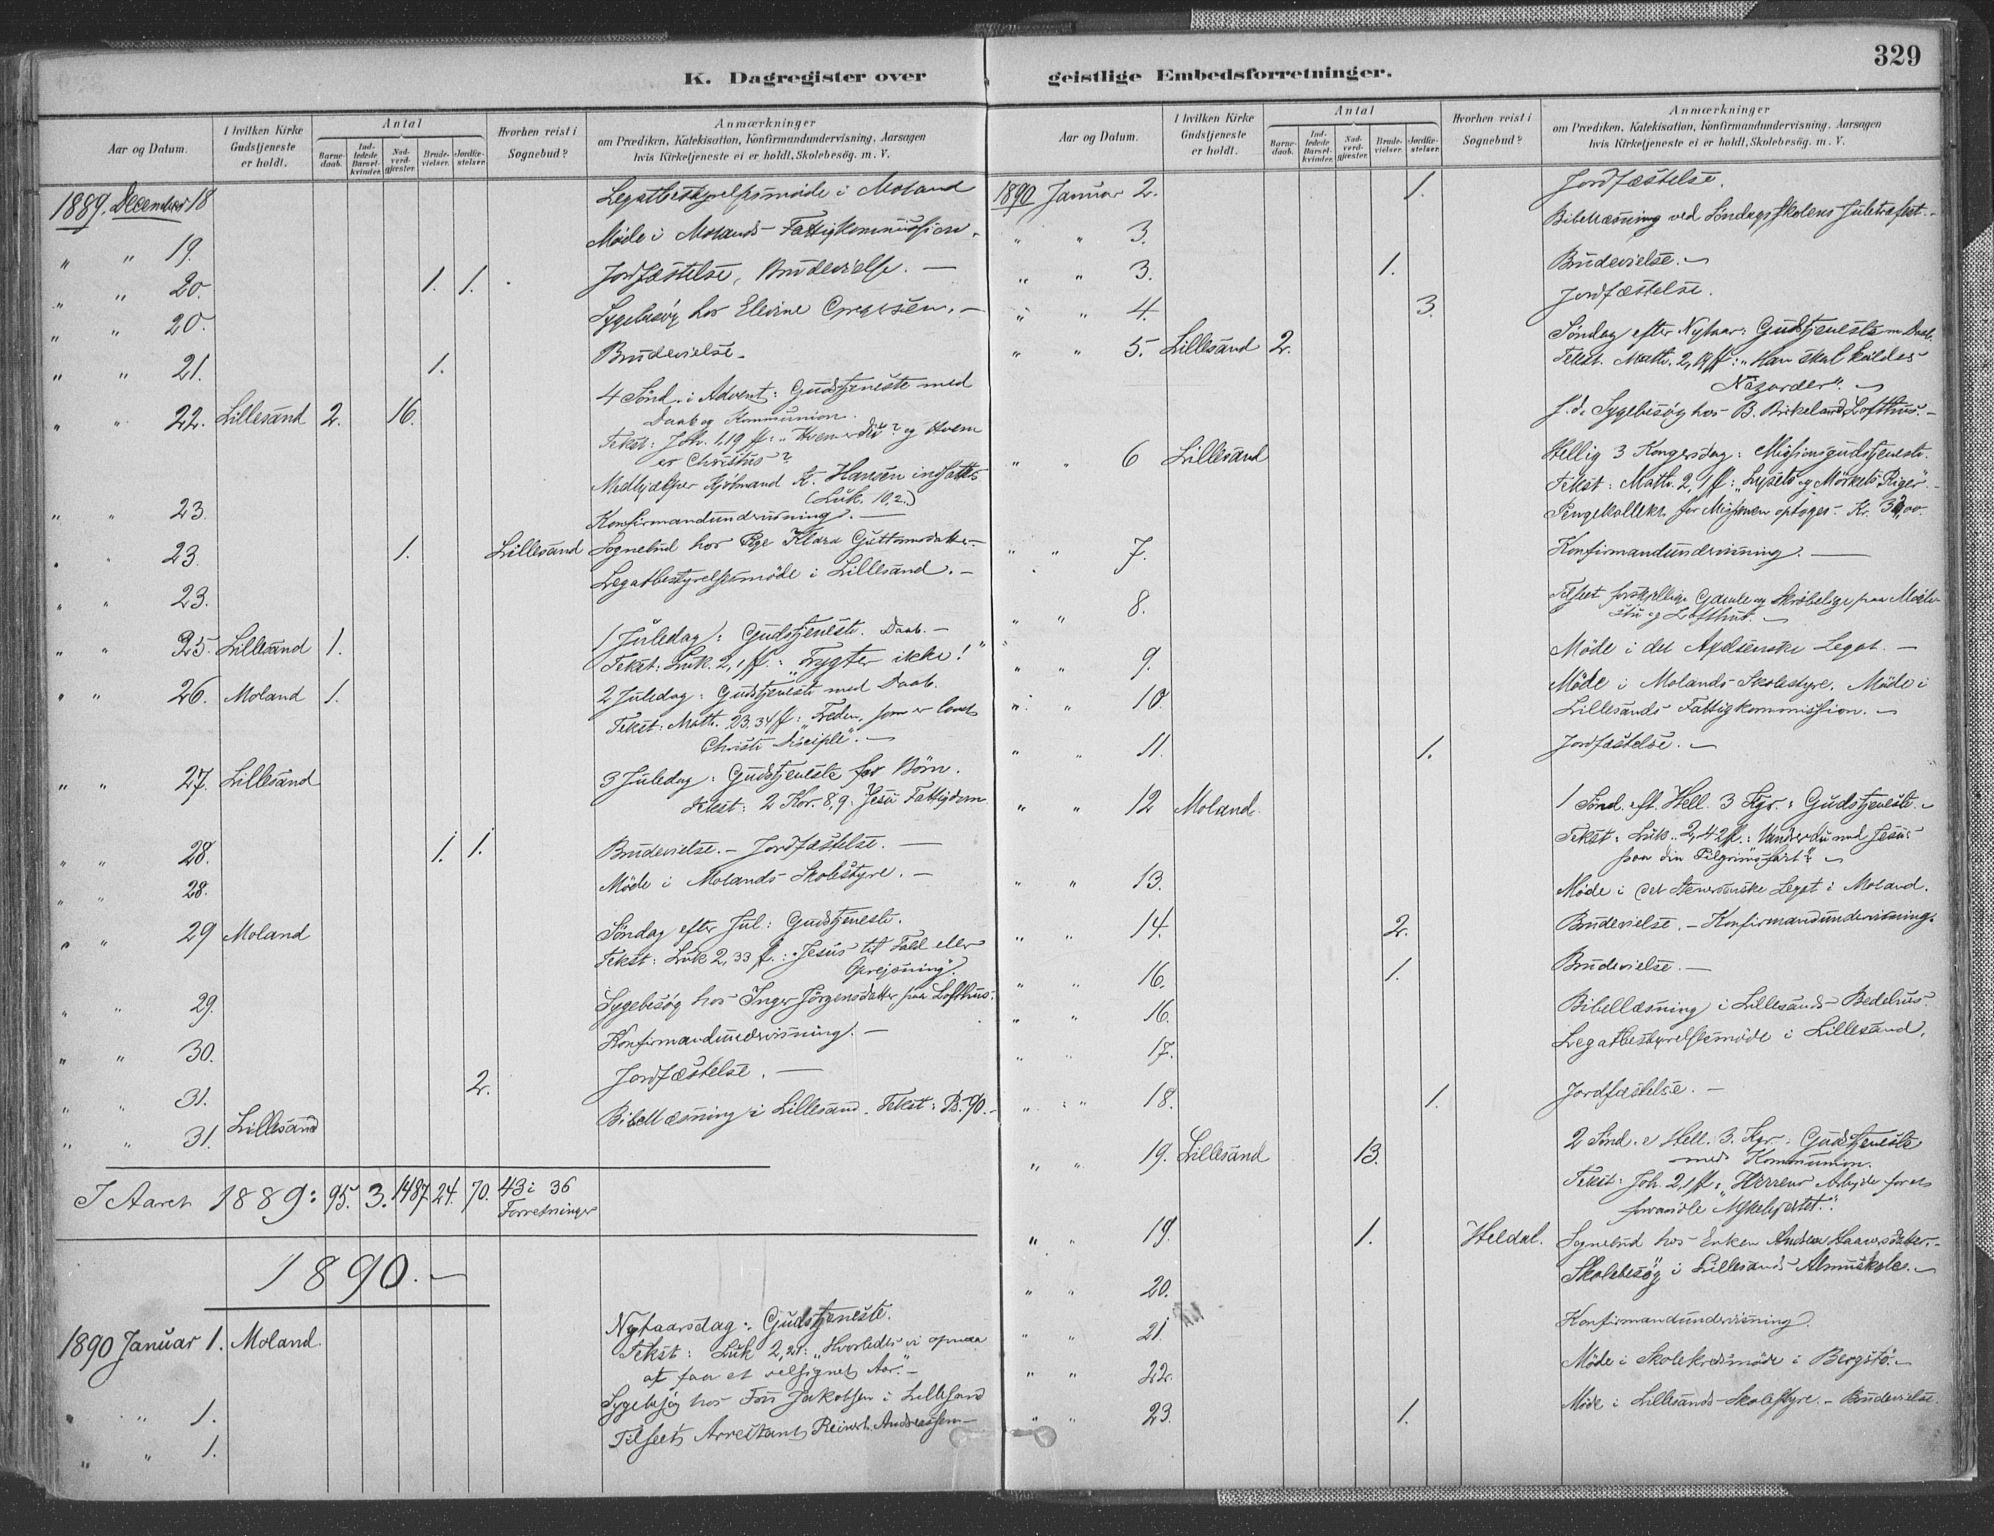 329
K. Dagregister over
geistlige Embedsforretninger.
Aar og Datum.
I hvilken Kirke Gudstjeneste er holdt.
Antal
Barnedaab.
Indledede Barselkvinder.
Nadverdgjæster.
Brudevielser.
Jordfæstelser.
Hvorhen reist i Sognebud?
Anmærkninger
om Prædiken, Katekisation, Konfirmandundervisning, Aarsagen
hvis Kirketjeneste ei er holdt, Skolebesøg. m. V.
1889. December 18 Legatbestyrelsesmøde i Moland
" " 19. Møde i Molands Fattigkommission.
" " 20. 1. 1. Jordfæstelse, Brudevielse. —
" " 20. Sygebesøg hos Elevine Gregersen. —
" " 21. 1. Brudevielse.
" " 22. Lillesand 2. 16. 4 Sønd. i Advent: Gudstjeneste med
Daab og Kommunion.
Tekst: Joh. 1,19 ff: "Hvem er Du? og Hvem
er Christus"?
Medhjælper Kjøbmand K. Hansen indsattes
(Luk. 10,2.)
" " 23. Konfirmandundervisning. —
" " 23. 1. Lillesand Sognebud hos Pige Klara Guttormsdatter.
" " 23. Legatbestyrelsesmøde i Lillesand. —
" " 25. Lillesand 1. 1 Juledag: Gudstjeneste. Daab. —
Tekst: Luk. 2,1 ff.: "Frygter ikke!"
" " 26. Moland 1. 2 Juledag: Gudstjeneste med Daab.
Tekst: Matth. 23.34 ff: "Freden, som er lovet
Christi Disciple". —
" " 27. Lillesand 3 Juledag: Gudstjeneste for Børn.
Tekst: 2 Kor. 8,9: Jesu Fattigdom
" " 28. 1. 1. Brudevielse. — Jordfæstelse. —
" " 28. Møde i Molands Skolestyre. —
" " 29 Moland Søndag efter Jul: Gudstjeneste.
Tekst: Luk 2,33 ff.: "Jesus til Fald eller
Oprejsning".
" " 29. Sygebesøg hos Inger Jörgensdatter paa Lofthus.
" " 30. Konfirmandundervisning. —
" " 31. 2. Jordfæstelse. —
" " 31. Lillesand Bibellæsning i Lillesand. Tekst: Ps. 90. —
I Aaret 1889: 95. 3. 1487 24. 70. 43 i 36
Forretninger
1890. —
1890 Januar 1. Moland. Nytaarsdag: Gudstjeneste.
Tekst: Luk 2,21: "Hvorledes vi opnaa
at faa et velsignet Aar". —
" " 1. Sygebesøg hos Fru Jakobsen i Lillesand
" " 1. Tilseet Arrestant Reinert Andreassen —
Aar og Datum.
I hvilken Kirke Gudstjeneste er holdt.
Antal
Barnedaab.
Indledede Barselkvinder.
Nadverdgjæster.
Brudevielser.
Jordfæstelser.
Hvorhen reist i Sognebud?
Anmærkninger
om Prædiken, Katekisation, Konfirmandundervisning, Aarsagen
hvis Kirketjeneste ei er holdt, Skolebesøg. m. V.
1890 Januar 2. 1. Jordfæstelse.
" " 3. Bibellæsning ved Søndagsskolens Juletræfest. —
" " 3. 1. Brudevielse. —
" " 4. 3. Jordfæstelse.
" " 5. Lillesand 2. Søndag efter Nytaar: Gudstjeneste m. Daab.
Tekst. Matth. 2,19 ff: "Han skal kaldes
Nazaræer". —
s. d. Sygebesøg hos B. Birkeland, Lofthus. —
" " 6 Lillesand Hellig 3 Kongersdag: Missionsgudstjeneste.
Tekst: Matth. 2,1 ff: "Lysets og Mørkets Riger". —
Pengekollekt for Missionen optoges. Kr. 32,00.
" " 7. Konfirmandundervisning. —
" " 8. Tilseet forskjellige Gamle og Skrøbelige paa
og Lofthus. —
" " 9. Møde i det Legat. —
" " 10. Møde i Molands Skolestyre. Møde i
Lillesands Fattigkommission. —
" " 11. 1. Jordfæstelse. —
" " 12 Moland. 1 Sønd. eft. Hell. 3 Kgr.: Gudstjeneste. —
Tekst: Luk. 2,42 ff.: "Vandrer du med Jesus
paa din Pilgrimsfart"? —
" " 13. Møde i det Stenersenske Legat i Moland.
" " 14. 2. Brudevielse. — Konfirmandundervisning.
" " 16. 1. Brudevielse. —
" " 16. Bibellæsning i Lillesands Bedehus.
" " 17. Legatbestyrelsesmøde i Lillesand.
" " 18. 1. Jordfæstelse. —
" " 19. Lillesand 13. 2 Sønd. e Hell. 3. Kgr. Gudstjeneste
med Kommunion.
Tekst: Joh. 2,1 ff: "Herrens Arbejde for at
forvandle Mskehjertet".
" " 19. 1. Heldal. Sognebud hos Enken Andrea Haaversdatter. —
" " 20. Skolebesøg i Lillesands Almuskole. —
" " 21. Konfirmandundervisning.
" " 22. Møde i Skolekredsmøde i Bergstø. —
" " 23. 1. Møde i Lillesands Skolestyre. — Brudevielse.